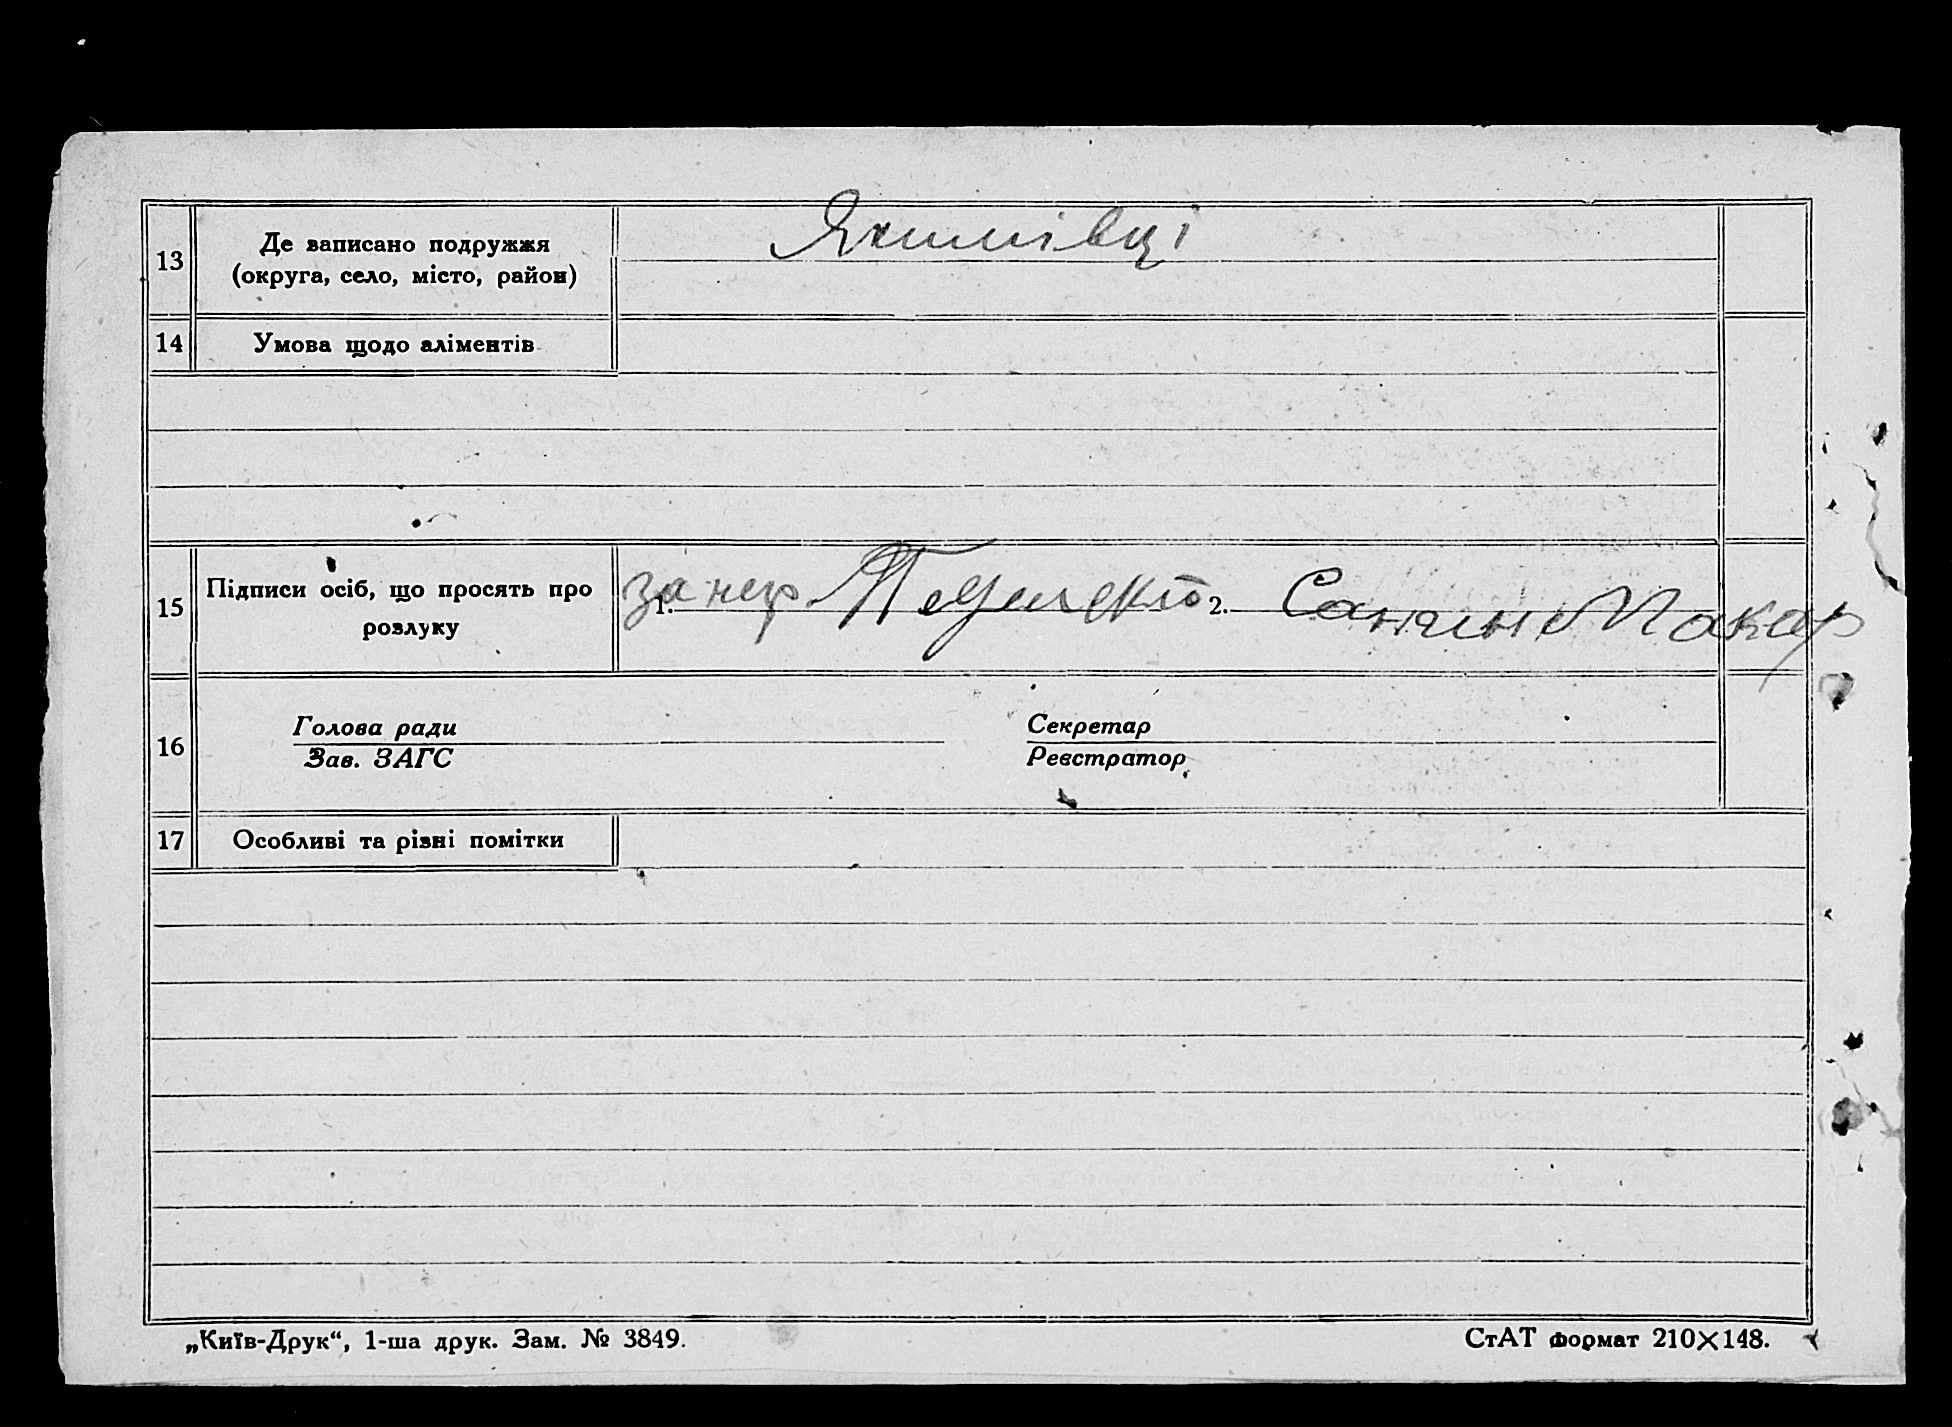 13 Де записано подружжя
(округа, село, місто, район)
Якимівці
14 Умова щодо аліментів
15 Підписи осіб, що просять про
розлуку
за неп 1. 2. Макар
16 Голова ради Секретар
Зав. ЗАГС Реєстратор
17 Особливі та різні помітки
„Київ-Друк“, 1-ша друк. Зам. № 3849. СтАТ формат 210×148.